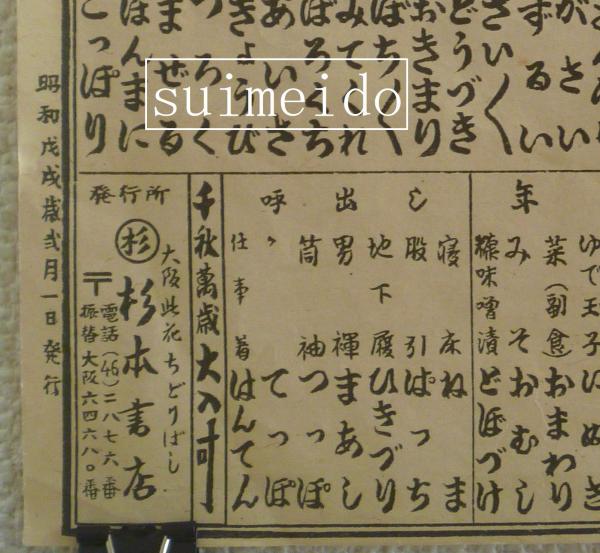 がさい
ずるい
さい〱
どうづき
おきまり
ばち〱
みてくれ
あいさ
きょうび
つろく
ませる
ほんまに
こっぽり
年
ゆで玉子 にぬき
菜(副食) おまわり
みそ おむし
糠味噌漬 どぼづけ
し
出
呼々
寝床 ねま
股引 ぱっち
地下履 ひきづり
男褌 まあし
筒袖 つっぽ
てっぽ
仕事着 はんてん
千秋萬歳大入叶
発行所
大阪此花ちどりばし
杉 杉本書店
〒
電話(46)二八七六番
振替大阪六四六八〇番
昭和戊戌歳弐月一日発行
suimeido